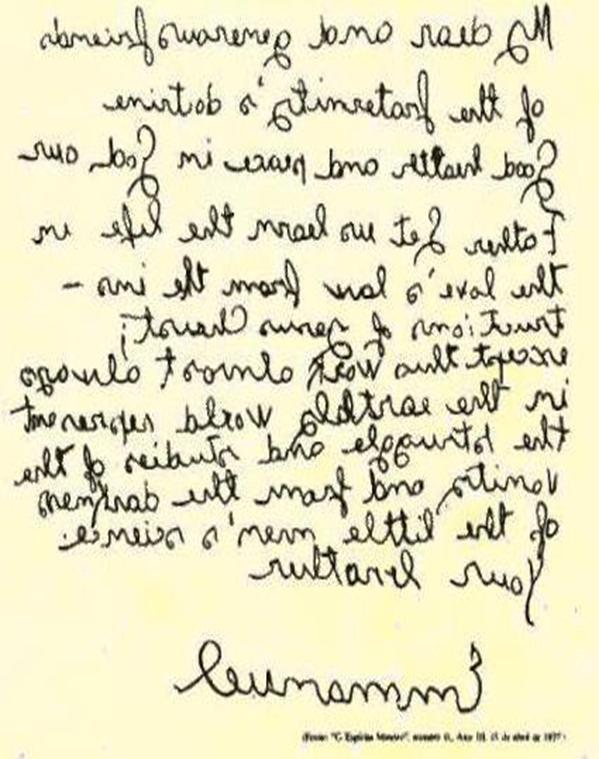 My dear and generous friends
of the fraternity's dotrine
Good health and peace in God our
Father Let us learn the life in
the love's law from the ins-
tructions of Jesus Christ;
except this way almost always
in the earthly world represent
the struggle and studies of the
vanity and from the darkness
of the little men's science.
Your brother
Emmanuel
(Fonte: "O Espírita Mineiro", número Ano III, 15 de abril de 1937)